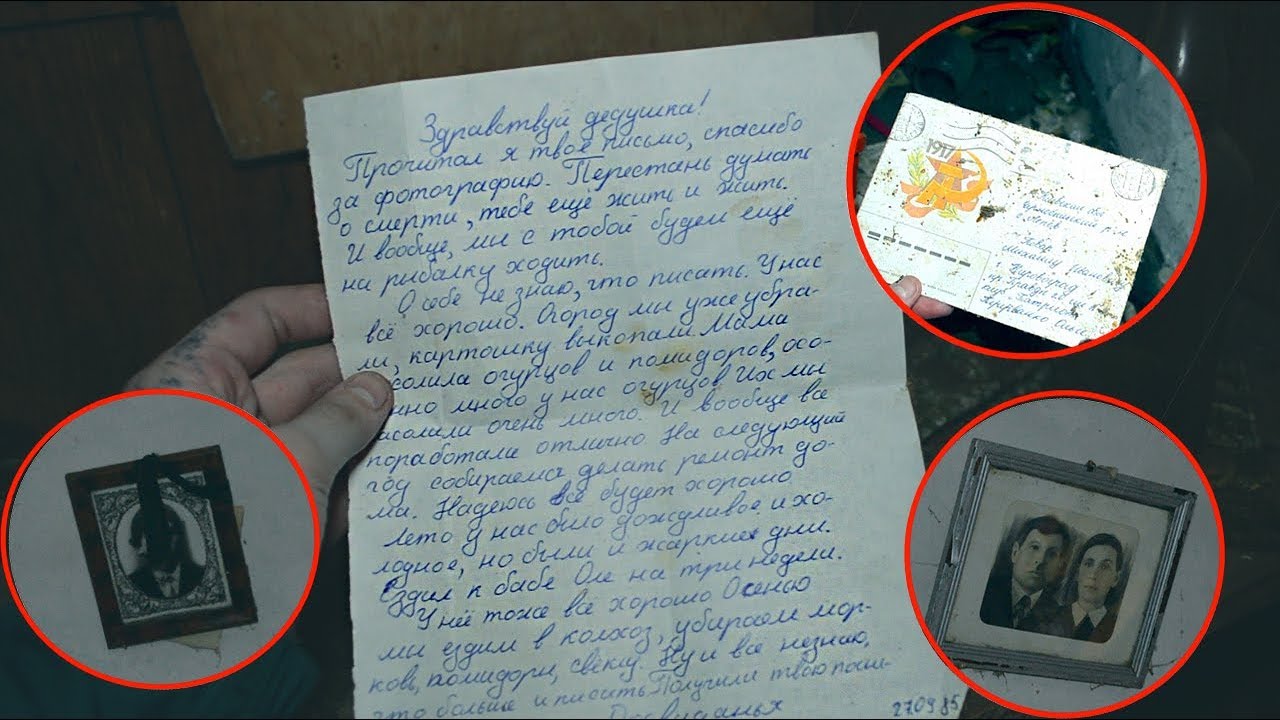 Здравствуй дедушка!
Прочитал я твоё письмо, спасибо
за фотографию. Перестань думать
о смерти, тебе ещё жить и жить.
И вообще, мы с тобой будем ещё
на рыбалку ходить.
О себе не знаю, что писать. У нас
всё хорошо. Огород мы уже убра-
ли, картошку выкопали Мама
солила огурцов и помидоров, осо-
нно много у нас огурцов Их мы
асолили очень много. И вообще все
поработали отлично На следующий
год собираемся делать ремонт до-
ма. Надеюсь всё будет хорошо
Лето у нас было дождливое и хо-
лодное, но были и жаркие дни.
Ездил к бабе Оле на три недели.
У неё тоже всё хорошо Осенью
мы ездим в колхоз, убираем мор-
ковь, помидоры, свеклу. Ну и всё незнаю,
что больше и писать Получили твою
Досвиданья
27.09.85
1917